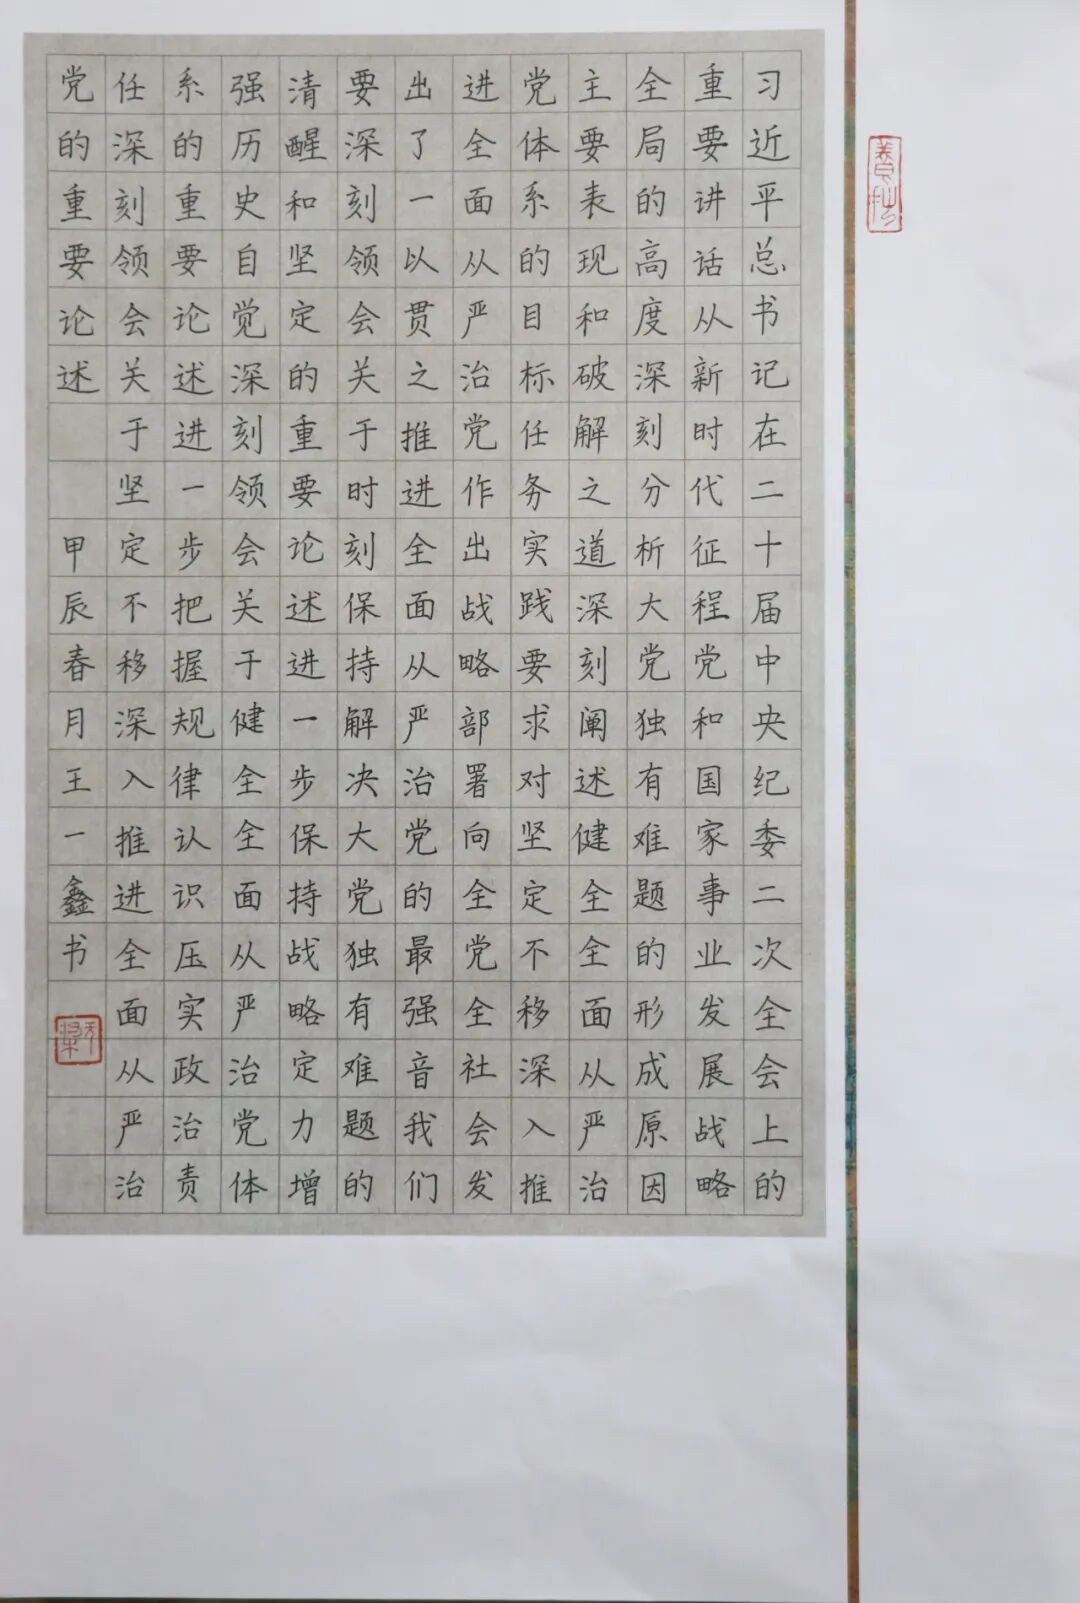 习近平总书记在二十届中央纪委二次全会上的
重要讲话从新时代征程党和国家事业发展战略
全局的高度深刻分析大党独有难题的形成原因
主要表现和破解之道深刻阐述健全全面从严治
党体系的目标任务实践要求对坚定不移深入推
进全面从严治党作出战略部署向全党全社会发
出了一以贯之推进全面从严治党的最强音我们
要深刻领会关于时刻保持解决大党独有难题的
清醒和坚定的重要论述进一步保持战略定力增
强历史自觉深刻领会关于健全全面从严治党体
系的重要论述进一步把握规律认识压实政治责
任深刻领会关于坚定不移深入推进全面从严治
党的重要论述 甲辰春月王一鑫书